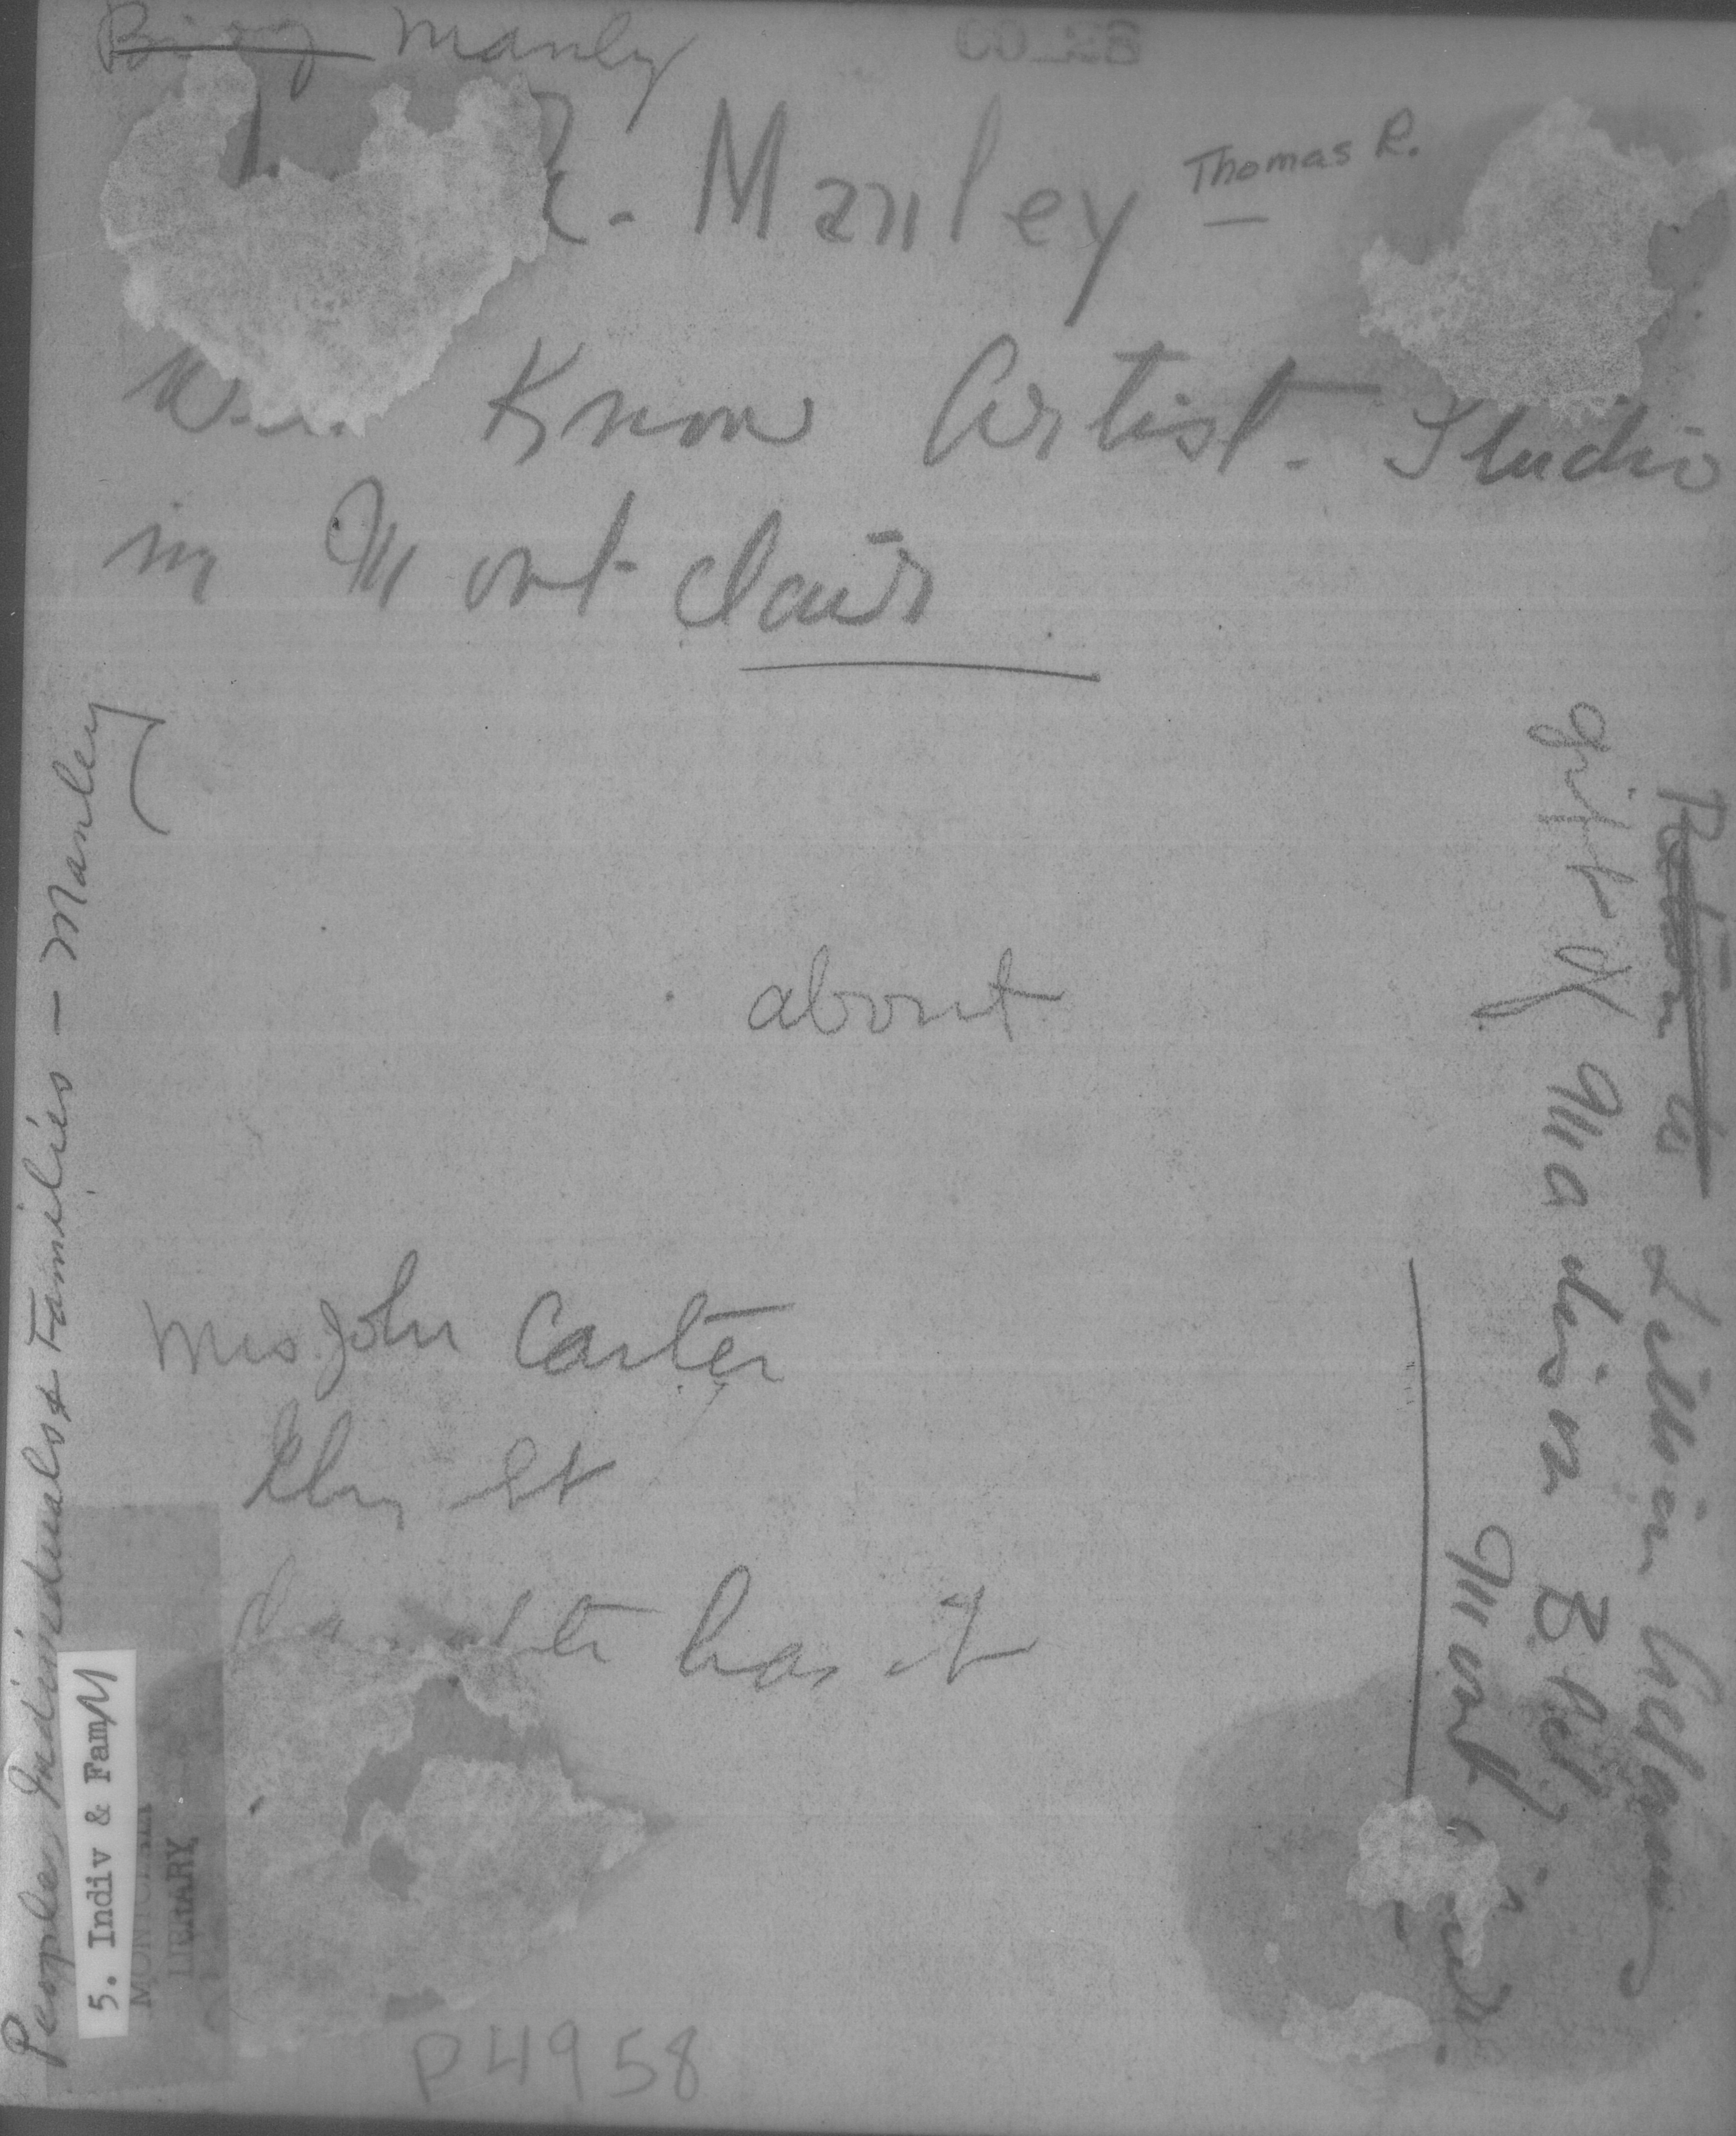 Manly
R. Manley - Thomas R.
Well Know Artist. Studio
in Mont clair
about
Mrs John Carter
Elm St
has it
P4958
People, Individuals & Families - Manley
5. Indiv & Fam/M
MONTCLAIR
LIBRARY
Return to Lillian Adams
gift of Madison Bldg
Montclair